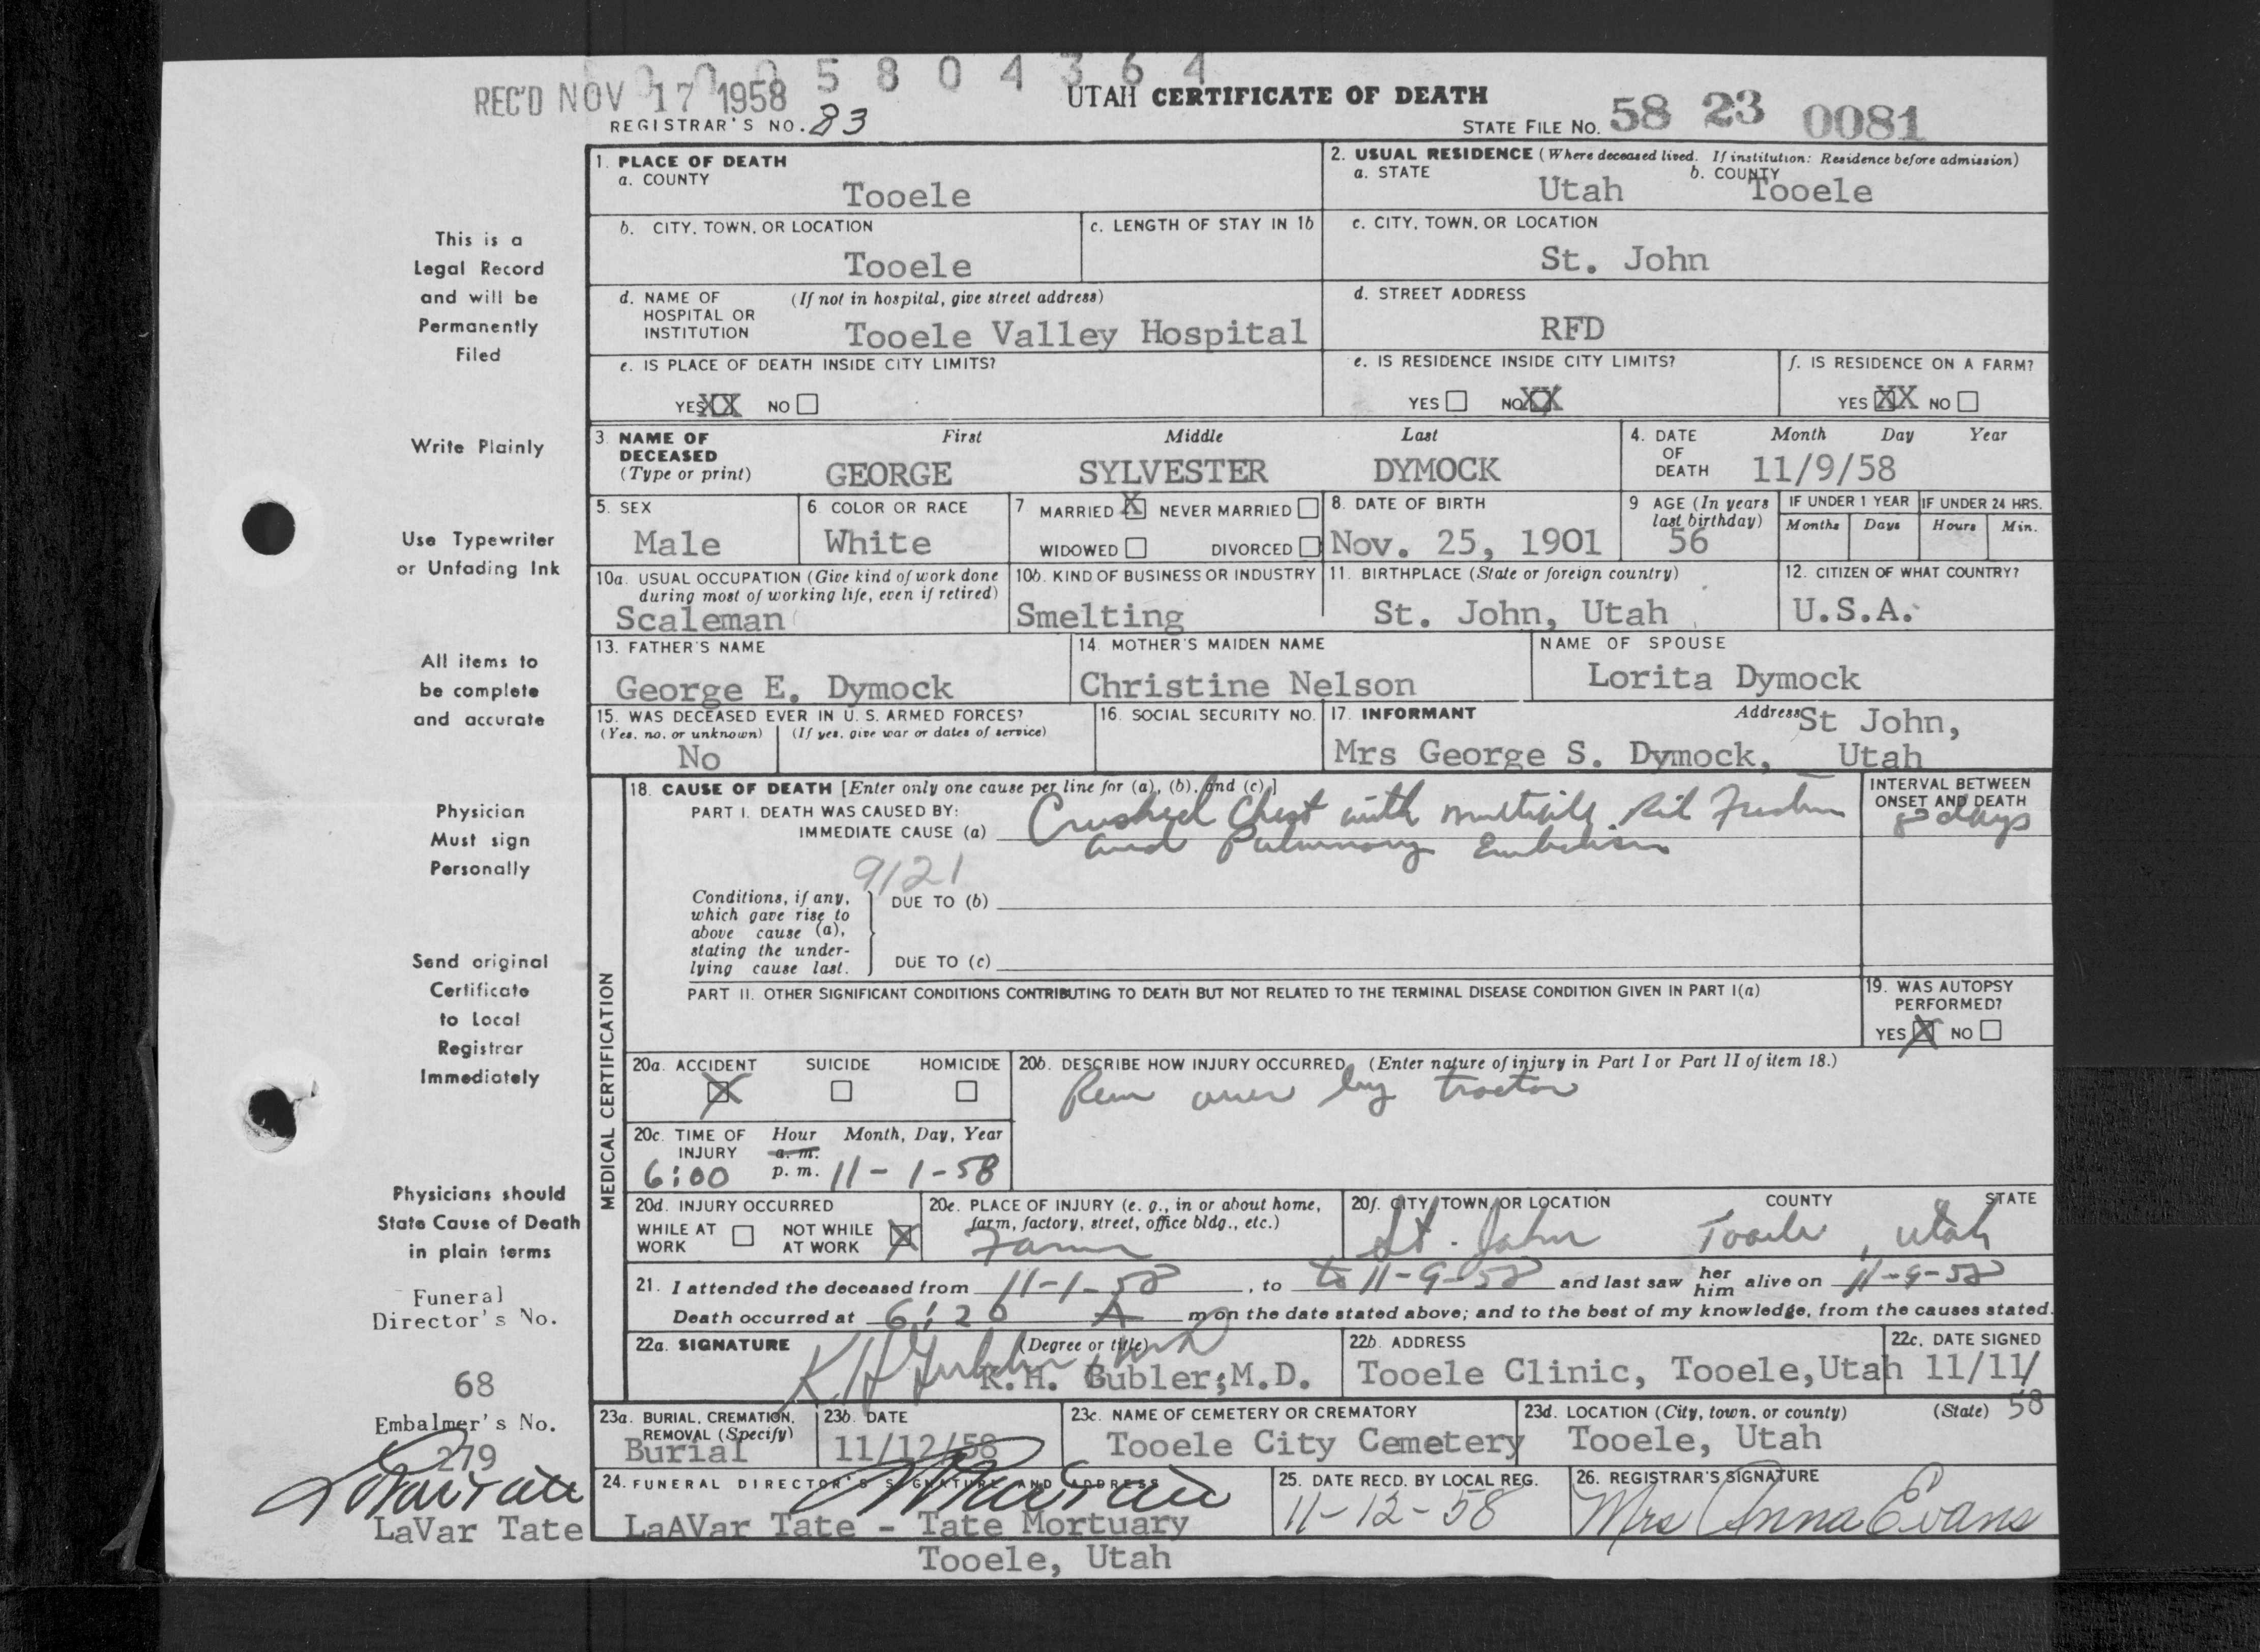 0 0 0 5 8 0 4 3 6 4
REC'D NOV 17 1958
UTAH CERTIFICATE OF DEATH
REGISTRAR'S NO. 83
STATE FILE NO. 58 23 0081
This is a
Legal Record
and will be
Permanently
Filed
Write Plainly
Use Typewriter
or Unfading Ink
All items to
be complete
and accurate
Physician
Must sign
Personally
Send original
Certificate
to Local
Registrar
Immediately
Physicians should
State Cause of Death
in plain terms
Funeral
Director's No.
68
Embalmer's No.
279
LaVar Tate
LaVar Tate
1. PLACE OF DEATH
a. COUNTY
Tooele
2. USUAL RESIDENCE (Where deceased lived. If institution: Residence before admission)
a. STATE b. COUNTY
Utah Tooele
b. CITY, TOWN, OR LOCATION
Tooele
c. LENGTH OF STAY IN 1b
c. CITY, TOWN, OR LOCATION
St. John
d. NAME OF (If not in hospital, give street address)
HOSPITAL OR
INSTITUTION Tooele Valley Hospital
d. STREET ADDRESS
RFD
e. IS PLACE OF DEATH INSIDE CITY LIMITS?
YES XX NO
e. IS RESIDENCE INSIDE CITY LIMITS?
YES NO XX
f. IS RESIDENCE ON A FARM?
YES XX NO
3. NAME OF First Middle Last
DECEASED
(Type or print) GEORGE SYLVESTER DYMOCK
4. DATE Month Day Year
OF
DEATH 11/9/58
5. SEX
Male
6. COLOR OR RACE
White
7 MARRIED X NEVER MARRIED
WIDOWED DIVORCED
8. DATE OF BIRTH
Nov. 25, 1901
9 AGE (In years
last birthday)
56
IF UNDER 1 YEAR IF UNDER 24 HRS.
Months Days Hours Min.
10a. USUAL OCCUPATION (Give kind of work done
during most of working life, even if retired)
Scaleman
10b. KIND OF BUSINESS OR INDUSTRY
Smelting
11. BIRTHPLACE (State or foreign country)
St. John, Utah
12. CITIZEN OF WHAT COUNTRY?
U.S.A.
13. FATHER'S NAME
George E. Dymock
14. MOTHER'S MAIDEN NAME
Christine Nelson
NAME OF SPOUSE
Lorita Dymock
15. WAS DECEASED EVER IN U. S. ARMED FORCES?
(Yes, no, or unknown) (If yes, give war or dates of service)
No
16. SOCIAL SECURITY NO.
17. INFORMANT Address St John,
Mrs George S. Dymock, Utah
MEDICAL CERTIFICATION
18. CAUSE OF DEATH [Enter only one cause per line for (a), (b), and (c).]
PART I. DEATH WAS CAUSED BY:
IMMEDIATE CAUSE (a) Crushed Chest with multiple Rib
and Pulmonary Embolism
INTERVAL BETWEEN
ONSET AND DEATH
8 days
9121
Conditions, if any,
which gave rise to
above cause (a),
stating the under-
lying cause last.
DUE TO (b)
DUE TO (c)
PART II. OTHER SIGNIFICANT CONDITIONS CONTRIBUTING TO DEATH BUT NOT RELATED TO THE TERMINAL DISEASE CONDITION GIVEN IN PART I(a)
19. WAS AUTOPSY
PERFORMED?
YES X NO
20a. ACCIDENT SUICIDE HOMICIDE
X
20b. DESCRIBE HOW INJURY OCCURRED (Enter nature of injury in Part I or Part II of item 18.)
Run over by tractor
20c. TIME OF Hour Month, Day, Year
INJURY a. m.
6:00 p. m. 11-1-58
20d. INJURY OCCURRED
WHILE AT NOT WHILE
WORK AT WORK X
20e. PLACE OF INJURY (e. g., in or about home,
farm, factory, street, office bldg., etc.)
Farm
20f. CITY, TOWN, OR LOCATION COUNTY STATE
St. John Tooele, Utah
21. I attended the deceased from 11-1-58, to to 11-9-58 and last saw her him alive on 11-9-58
Death occurred at 6:20 A m on the date stated above; and to the best of my knowledge, from the causes stated.
22a. SIGNATURE (Degree or title)
K H Gubler, MD
K.H. Gubler;M.D.
22b. ADDRESS
Tooele Clinic, Tooele,Utah
22c. DATE SIGNED
11/11/
58
23a. BURIAL, CREMATION,
REMOVAL (Specify)
Burial
23b. DATE
11/12/58
23c. NAME OF CEMETERY OR CREMATORY
Tooele City Cemetery
23d. LOCATION (City, town, or county) (State)
Tooele, Utah
24. FUNERAL DIRECTOR'S SIGNATURE AND ADDRESS
LaVar Tate
LaAVar Tate - Tate Mortuary
Tooele, Utah
25. DATE RECD. BY LOCAL REG.
11-12-58
26. REGISTRAR'S SIGNATURE
Mrs Anna Evans